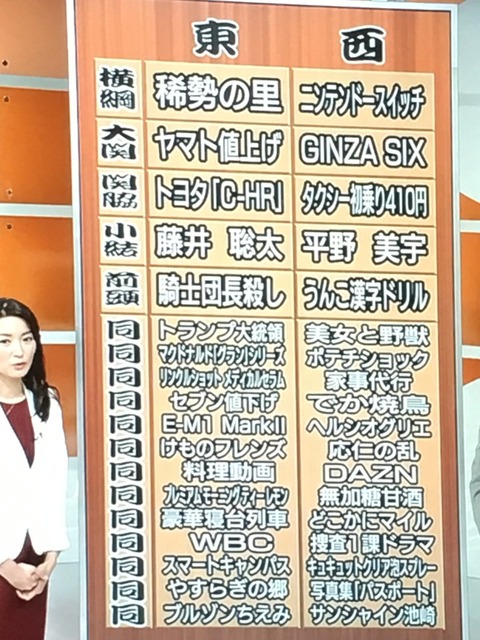 東 西
横綱 稀勢の里 ニンテンドースイッチ
大関 ヤマト値上げ GINZA SIX
関脇 トヨタ「C-HR」 タクシー初乗り410円
小結 藤井 聡太 平野 美宇
前頭 騎士団長殺し うんこ漢字ドリル
同 トランプ大統領 美女と野獣
同 マクドナルド「グラン」シリーズ ポテチショック
同 リンクルショット メディカルセラム 家事代行
同 セブン値下げ でか焼鳥
同 E-M1 MarkII ヘルシオグリエ
同 けものフレンズ 応仁の乱
同 料理動画 DAZN
同 プレミアムモーニングティーレモン 無加糖甘酒
同 豪華寝台列車 どこかにマイル
同 WBC 捜査1課ドラマ
同 スマートキャンバス キュキュットクリア泡スプレー
同 やすらぎの郷 写真集「パスポート」
同 ブルゾンちえみ サンシャイン池崎